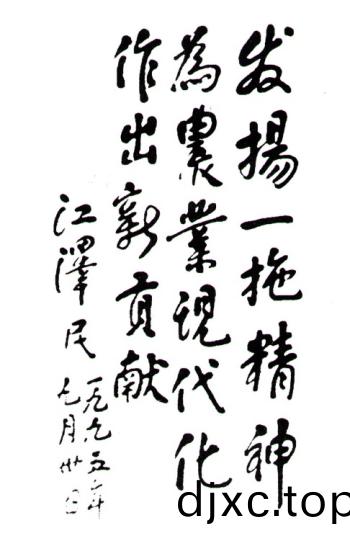 发揚一拖精神
為農業現代化
作出新貢献
江澤民
一九九五年
七月卅日
djxc.top